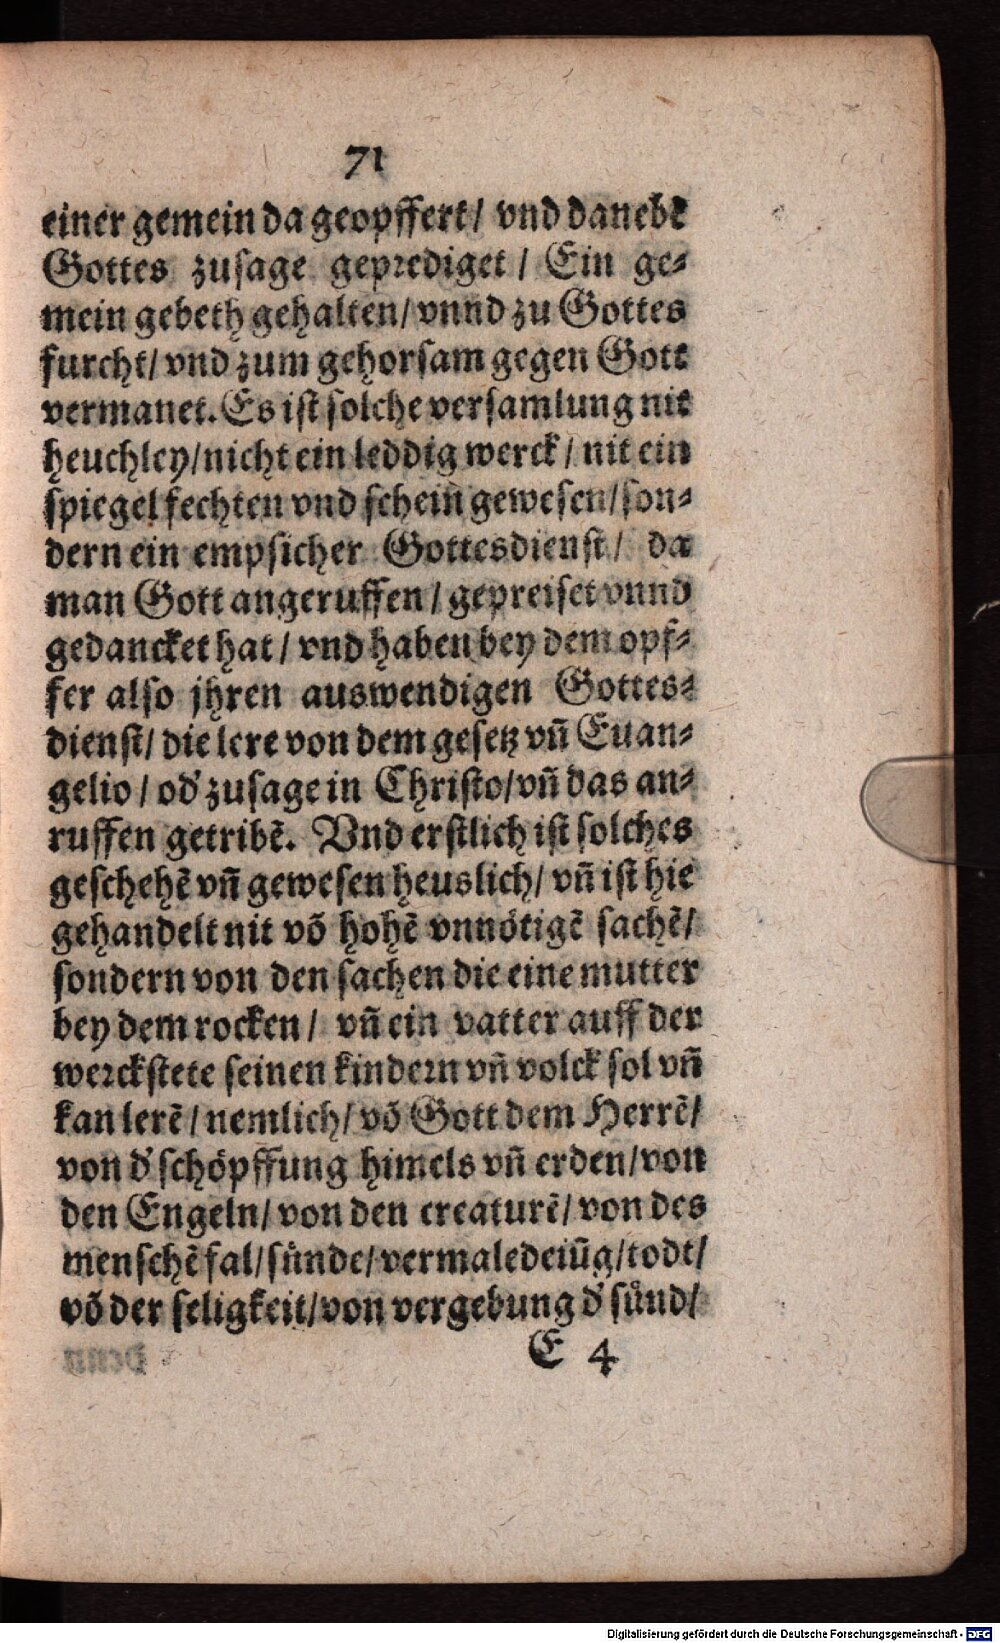 71
einer gemein da geopffert/ vnd danebē
Gottes zusage geprediget / Ein ge⸗
mein gebeth gehalten/ vnnd zu Gottes
furcht/ vnd zum gehorsam gegen Gott
vermanet. Es ist solche versamlung nit
heuchley/nicht ein leddig werck / nit ein
spiegel fechten vnd schein gewesen/son⸗
dern ein empsicher Gottesdienst/ da
man Gott angeruffen / gepreiset vnnd
gedancket hat / vnd haben bey dem opf⸗
fer also jhren auswendigen Gottes⸗
dienst/ die lere von dem gesetz vñ Euan⸗
gelio / od' zusage in Christo/vñ das an⸗
ruffen getribē. Vnd erstlich ist solches
geschehē vñ gewesen heuslich/ vñ ist hie
gehandelt nit võ hohē vnnötigē sachē/
sondern von den sachen die eine mutter
bey dem rocken / vñ ein vatter auff der
werckstete seinen kindern vñ volck sol vñ
kan lerē / nemlich/ võ Gott dem Herrē/
von d' schöpffung himels vñ erden/von
den Engeln/ von den creaturē/ von des
menschē fal/sünde/vermaledeiũg/todt/
võ der seligkeit/von vergebung d' sünd/
E 4
Digitalisierung gefördert durch die Deutsche Forschungsgemeinschaft - DFG